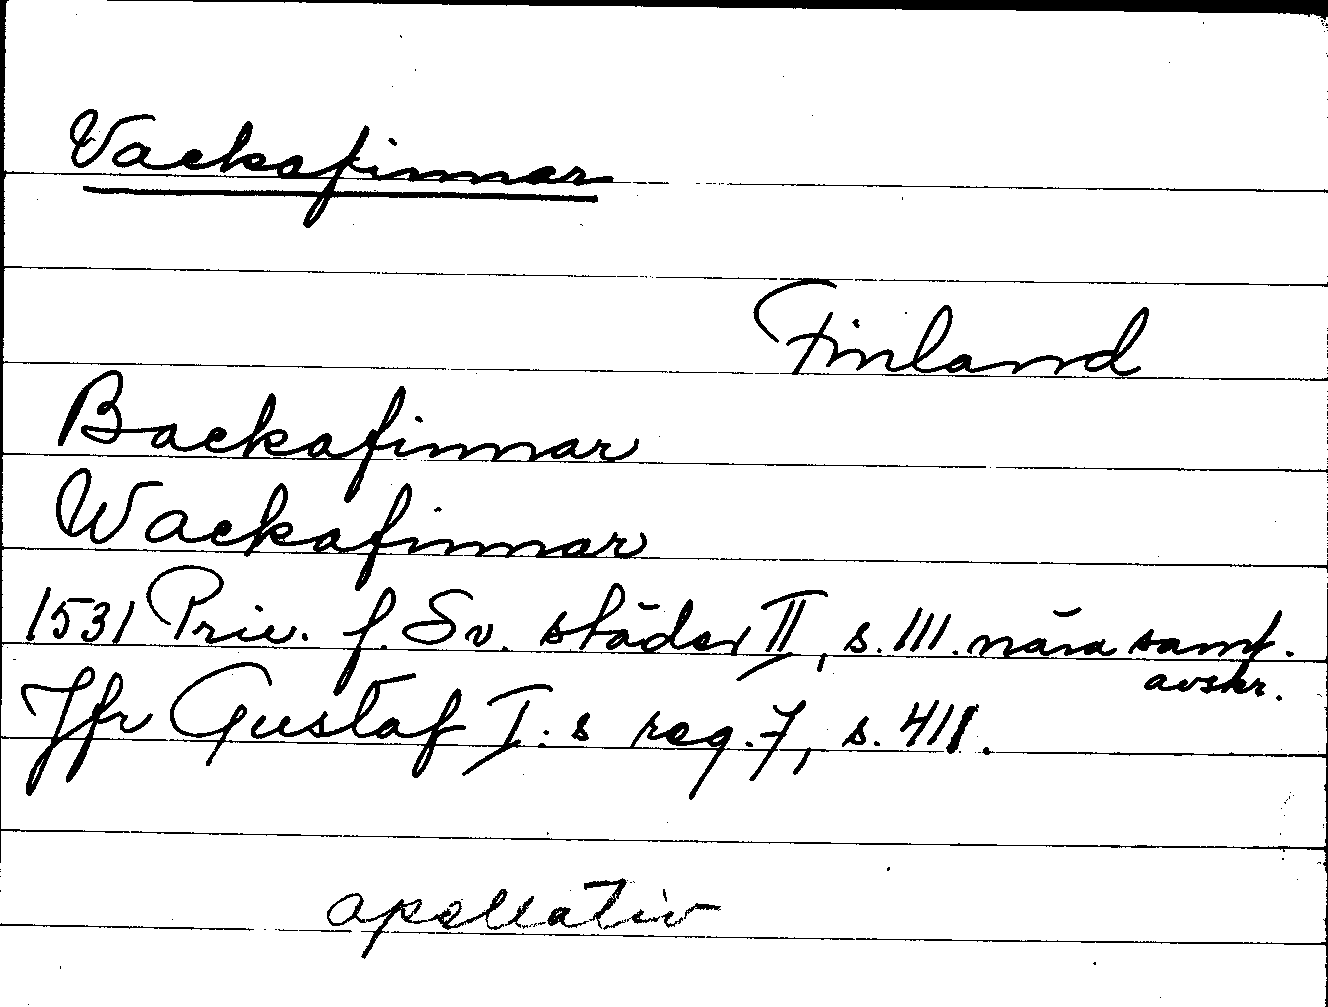 Vackafinnar
Finland
Backafinnar
Wackafinnar
1531 Priv. f. Sv. städer II, s. 111. nära samt.
avskr.
Jfr Gustaf I:s reg. 7, s. 411.
apellativ